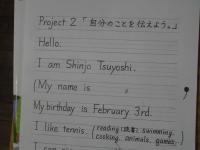 Project 2 「自分のことを伝えよう。」
Hello.
I am Shinjo Tsuyoshi.
(My name is 〃 )
My birthday is February 3rd.
I like tennis. (reading (読書), swimming.
cooking. animals, games.